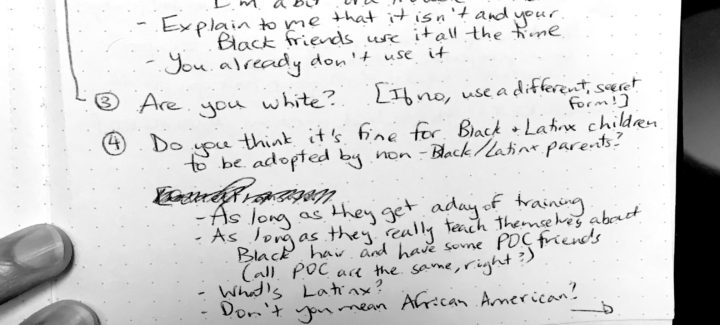 I'm a bit
- Explain to me that it isn't and your
Black friends use it all the time
- You already don't use it
③ Are you white? [If no, use a different, secret
form!]
④ Do you think it's fine for Black + Latinx children
to be adopted by non-Black/Latinx parents?
- As long as they get a day of training
- As long as they really teach themselves about
Black hair and have some POC friends
(all POC are the same, right?)
- What's Latinx?
- Don't you mean African American?